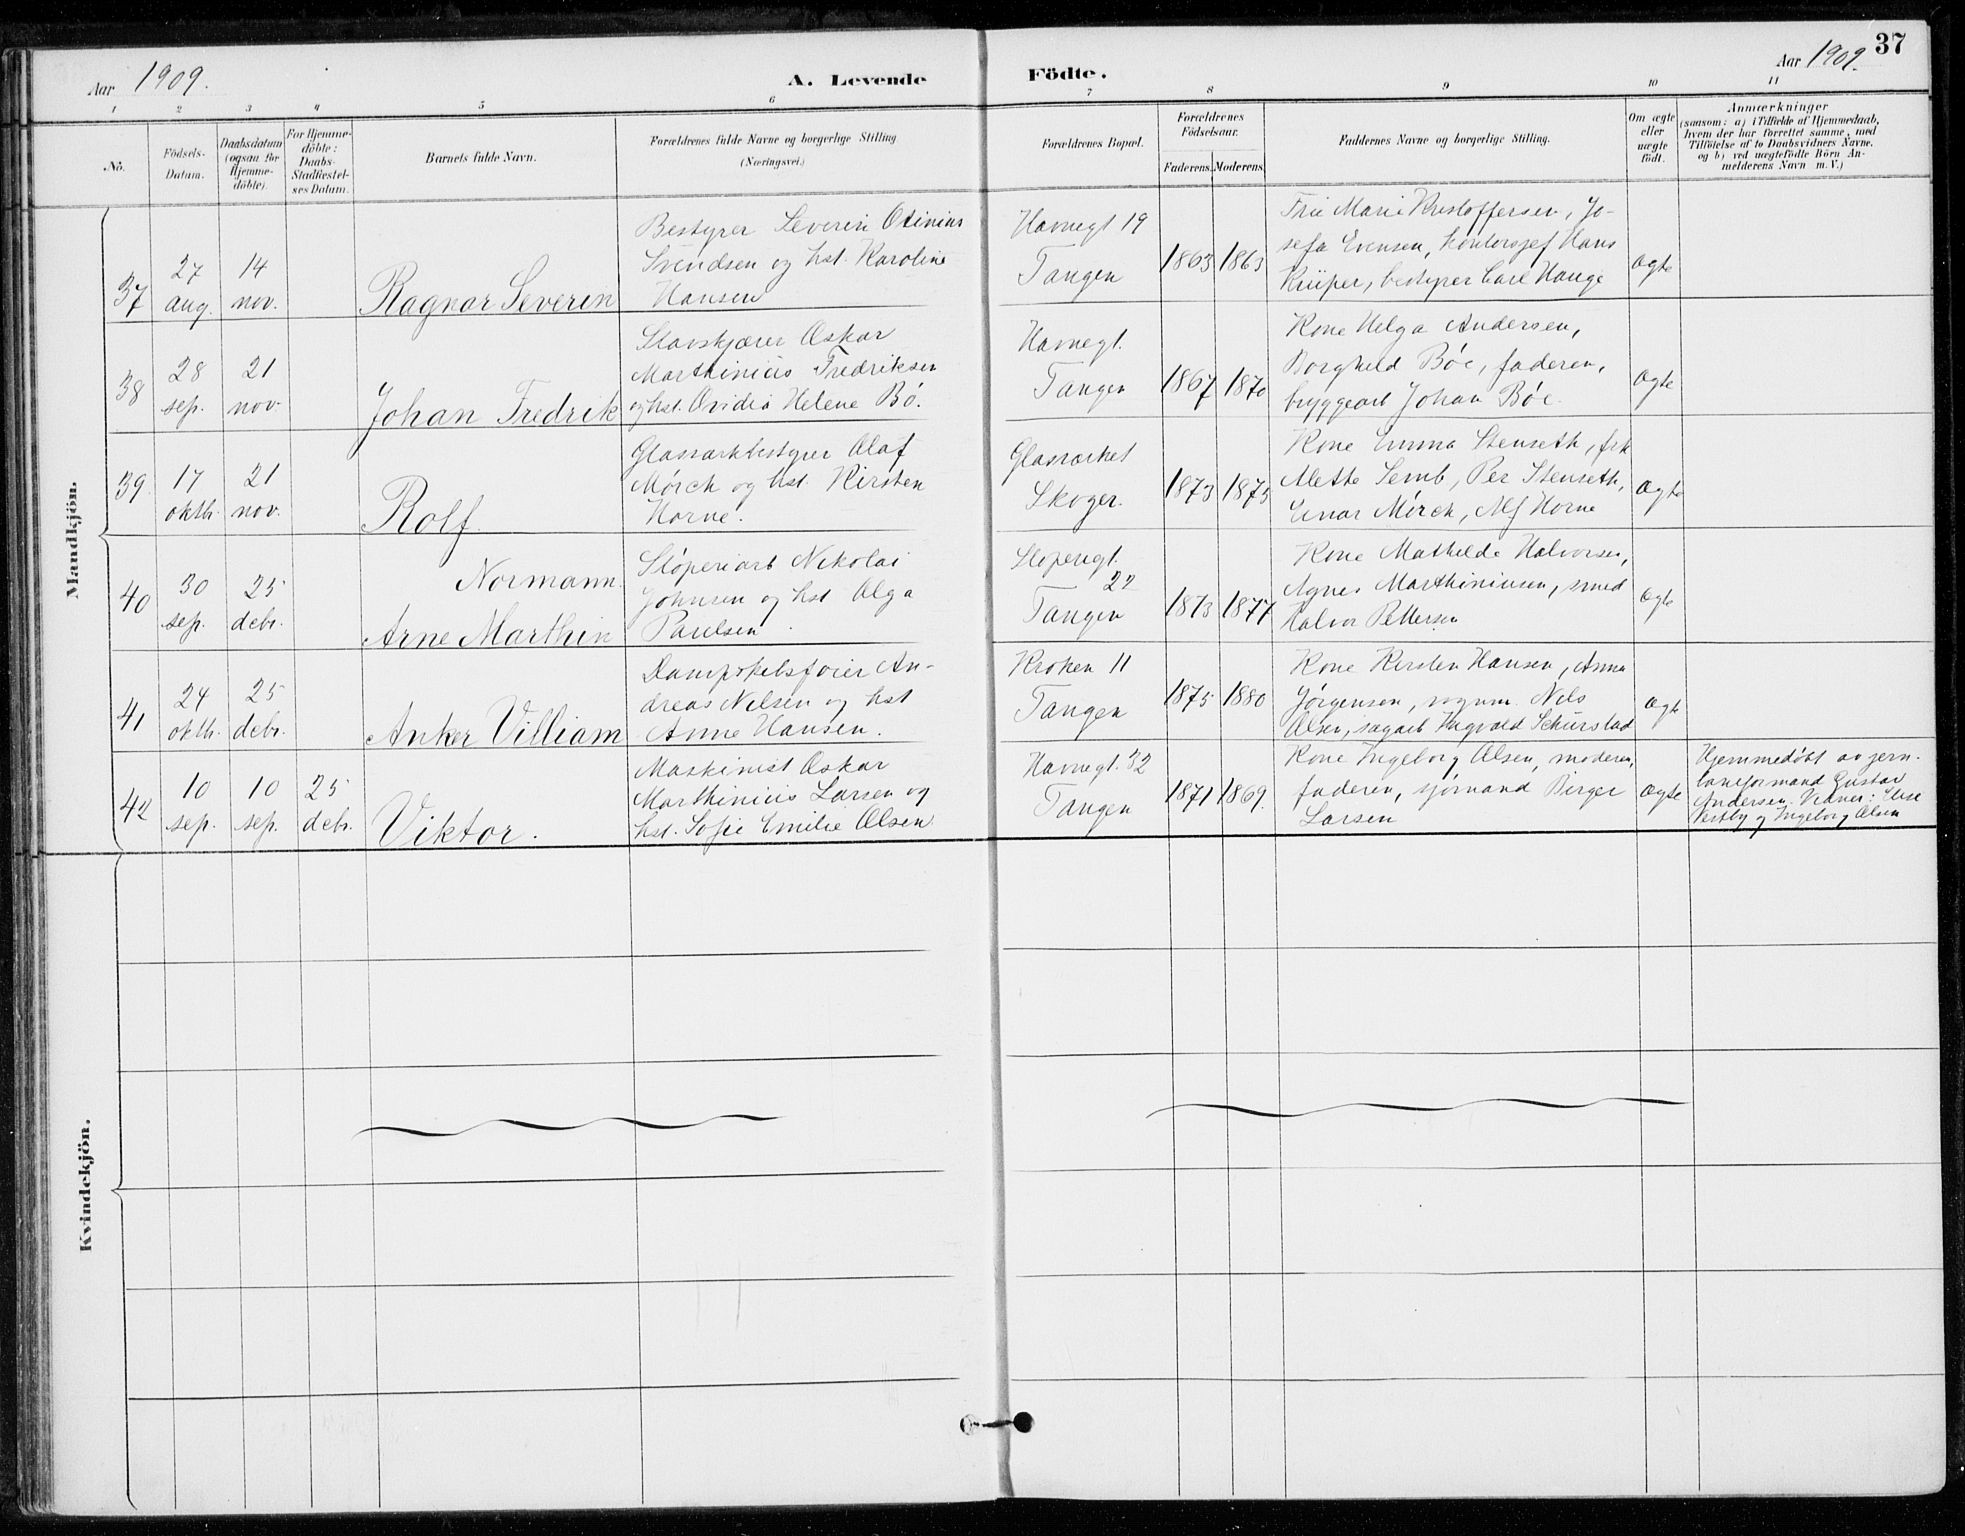 Aar 1909.
A. Levende
Födte.
Aar 1909.
37
1 2 3 4 5 6 7 8 9 10 11
No.
Födsels-
Datum.
Daabsdatum
(ogsaa for
Hjemme-
döbte).
For Hjemme-
döbte:
Daabs-
Stadfæstel-
ses Datum.
Barnets fulde Navn.
Forældrenes fulde Navne og borgerlige Stilling
(Næringsvei.)
Forældrenes Bopæl.
Forældrenes
Födselsaar.
Faderens. Moderens.
Faddernes Navne og borgerlige Stilling.
Om ægte
eller
uægte
födt.
Anmærkninger
(saasom: a) i Tilfælde af Hjemmedaab,
hvem der har forrettet samme, med
Tilföielse af to Daabsvidners Navne,
og b) ved uægtefödte Börn An-
melderens Navn m. V.)
Mandkjön.
37
27
aug.
14
nov.
Ragnar Severin
Bestyrer Severin Otinius
Svendsen og hst. Karoline
Hansen
Havnegt 19
Tangen
1863 1863
Frü Marie Kristoffersen, Jo-
sefa Evensen, kontorsjef Hans
Küiper, bestyrer Carl Hauge
Ægte
38
28
sep.
21
nov.
Johan Fredrik
Stavskjærer Oskar
Marthinius Fredriksen
og hst. Ovidia Helene Bö.
Havnegt.
Tangen
1867 1870
Kone Helga Andersen,
Borghild Böe, faderen,
bryggearb Johan Böe.
Ægte
39.
17
oktb.
21
nov.
Rolf.
Glasværkbestyrer Olaf
Mørch og hst. Kirsten
Horne.
Glasværket
Skoger.
1873 1875
Kone Emma Stenseth, frk
Alette Semb, Per Stenseth,
Einar Mørch, Alf Horne
Ægte
40
30
sep.
25
debr.
Normann
Arne Marthin
Støperiarb Nikolai
Johnsen og hst Olga
Paulsen.
Støperigt.
22
Tangen
1873 1877
Kone Mathilde Halvorsen,
Agnes Marthiniusen, smed
Halvor Pettersen
Ægte
41
24
oktb.
25
debr.
Anker Villiam
Dampskibsfører An-
dreas Nilsen og hst
Anne Hansen.
Kroken 11
Tangen
1875 1880
Kone Kirsten Hansen, Anna
Jørgensen, vognm. Nils
Olsen, sagarb Ingvald
Ægte
42
10
sep.
10
sep.
25
debr.
Viktor.
Maskinist Oskar
Marthinius Larsen og
hst. Sofie Emilie Olsen
Havnegt. 32
Tangen
1871 1869.
Kone Ingeborg Olsen, moderen,
faderen, sjømand Birger
Larsen
Ægte
Hjemmedøbt av jern-
baneformand Gustav
Andersen. Vidner: Else
Vestby og Ingeborg Olsen
Kvindekjön.